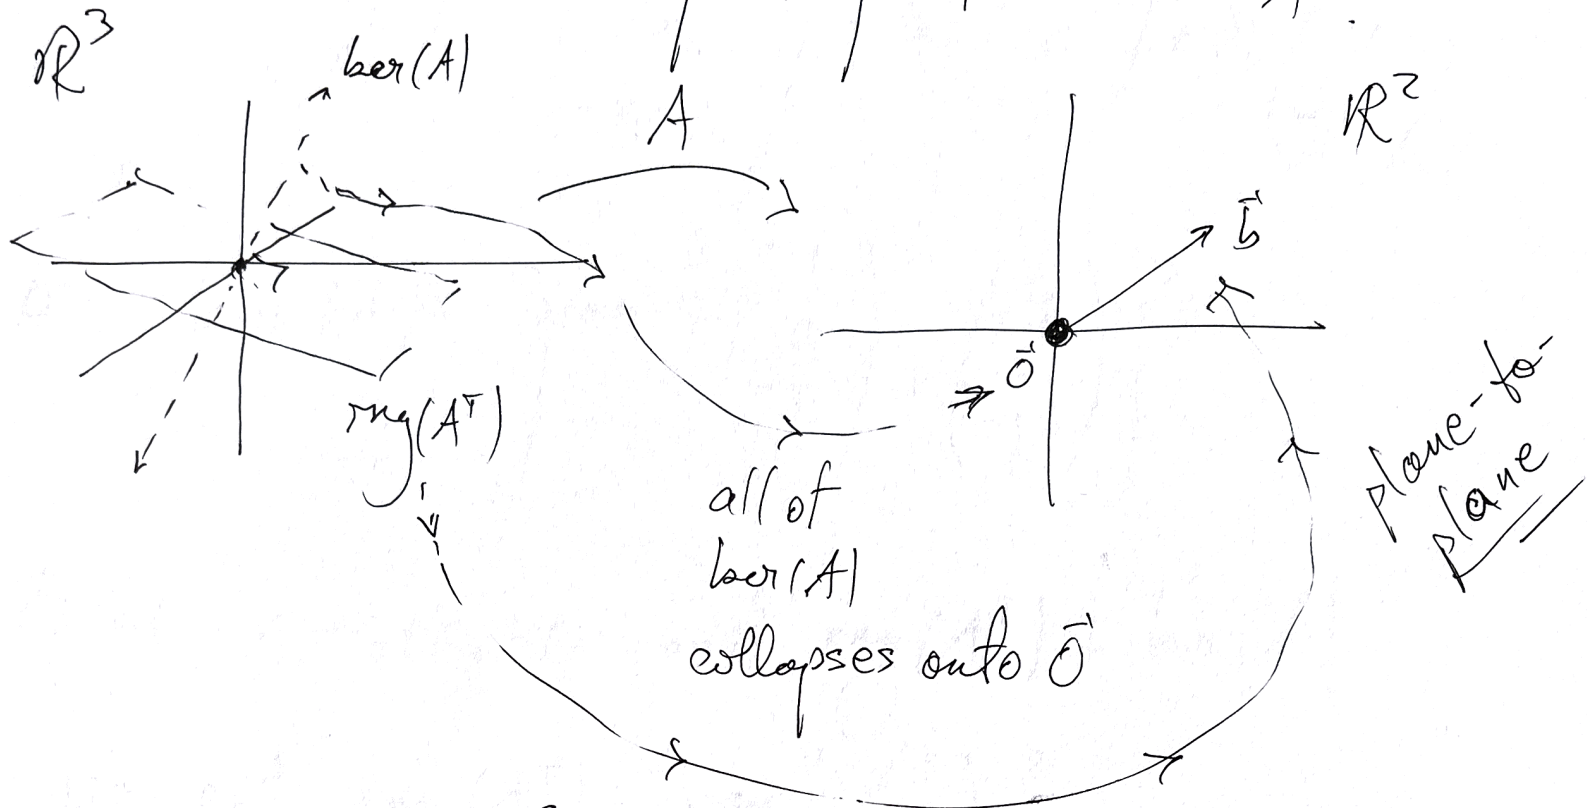 ℝ³
ker(A)
A
ℝ²
b⃗
0⃗
rng(Aᵀ)
all of
ker(A)
collapses onto 0⃗
plane-to-
plane